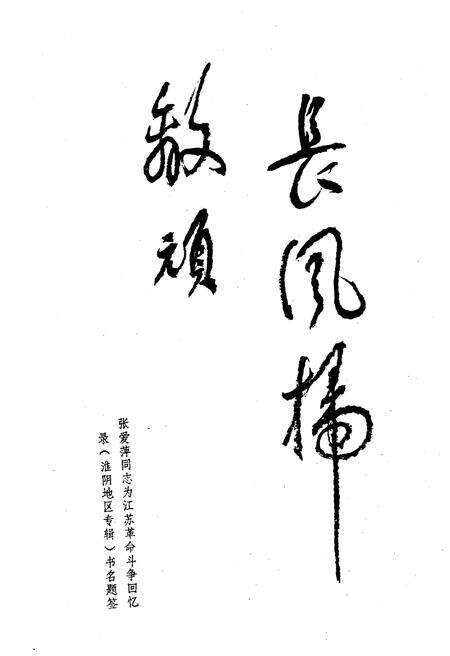 長風掃
敵頑
张爱萍同志为江苏革命斗争回忆
录（淮阴地区专辑）书名题签